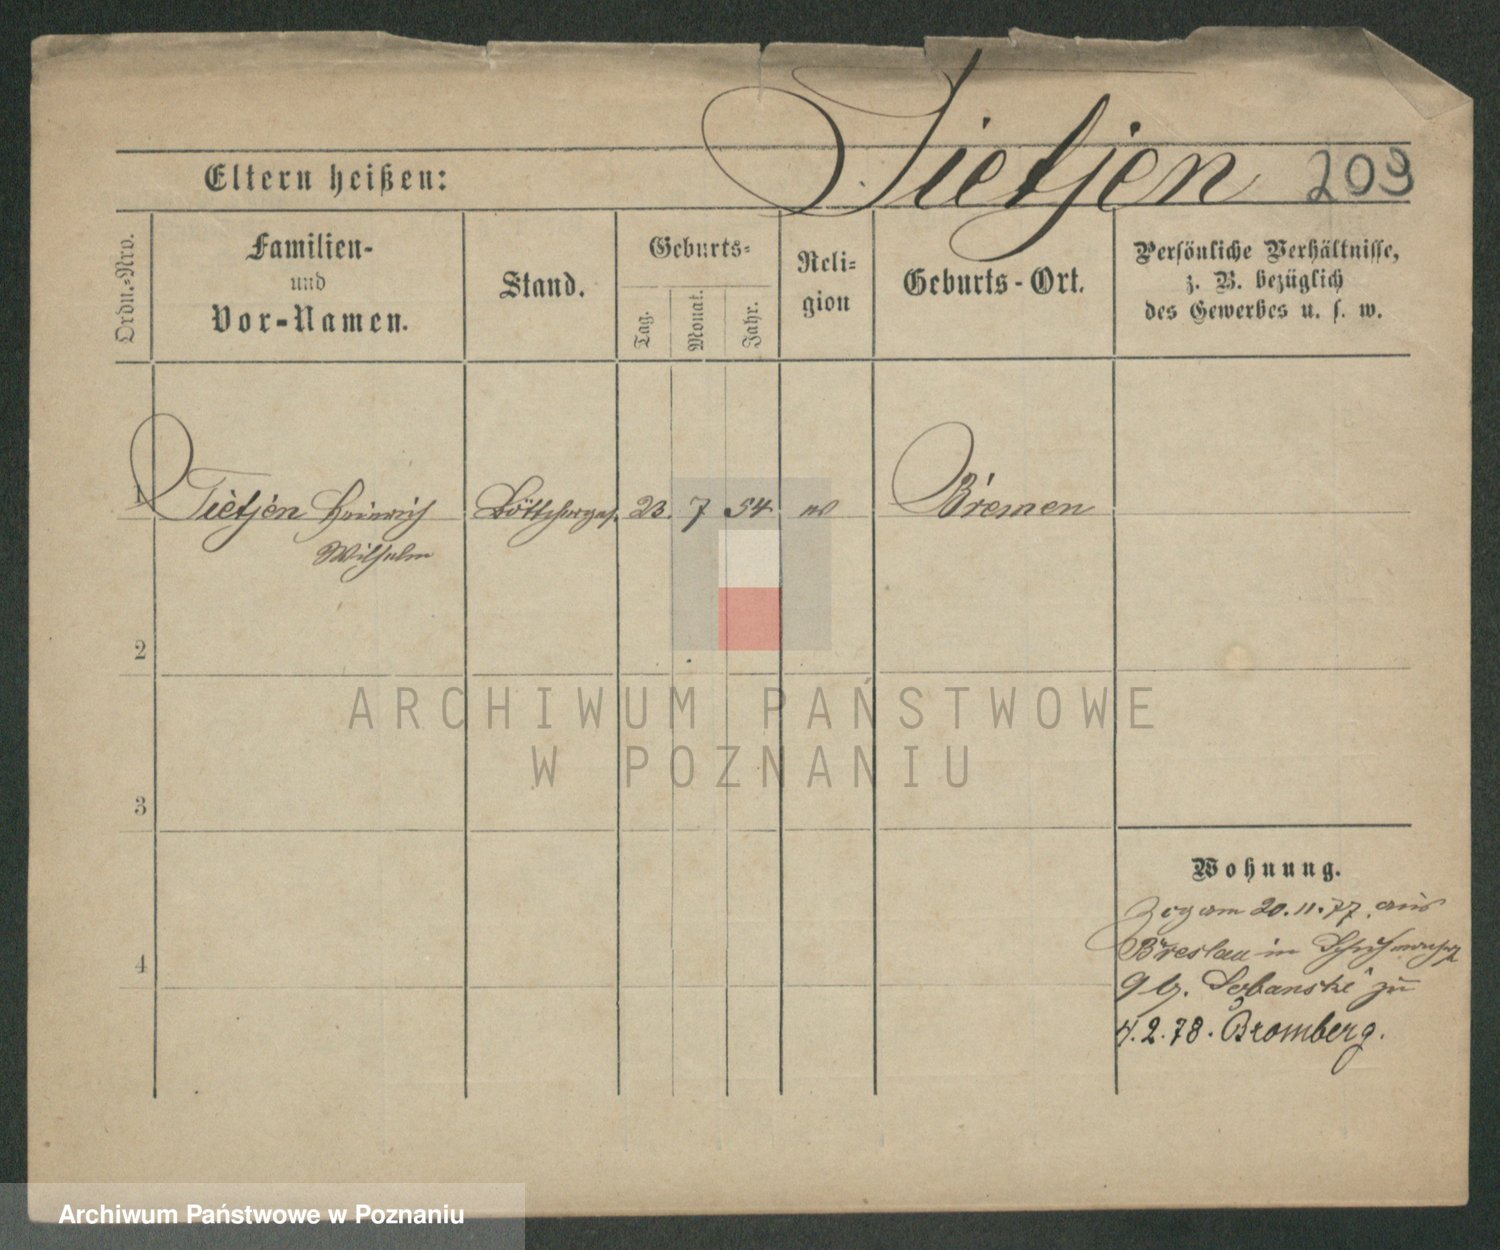 Tietjen 209
Eltern heißen:
Ordn.-Nro.
Familien-
und
Vor-Namen.
Stand.
Geburts-
Tag.
Monat.
Jahr.
Reli-
gion
Geburts-Ort.
Persönliche Verhältnisse,
z. B. bezüglich
des Gewerbes u. s. w.
1 Tietjen Heinrich Böttcherges. 23. 7 54 ev Bremen
Wilhelm
2
3
4
ARCHIWUM PAŃSTWOWE
W POZNANIU
Wohnung.
Zog am 20.11.77. aus
Breslau in
9 b. zu
4.2.78. Bromberg.
Archiwum Państwowe w Poznaniu